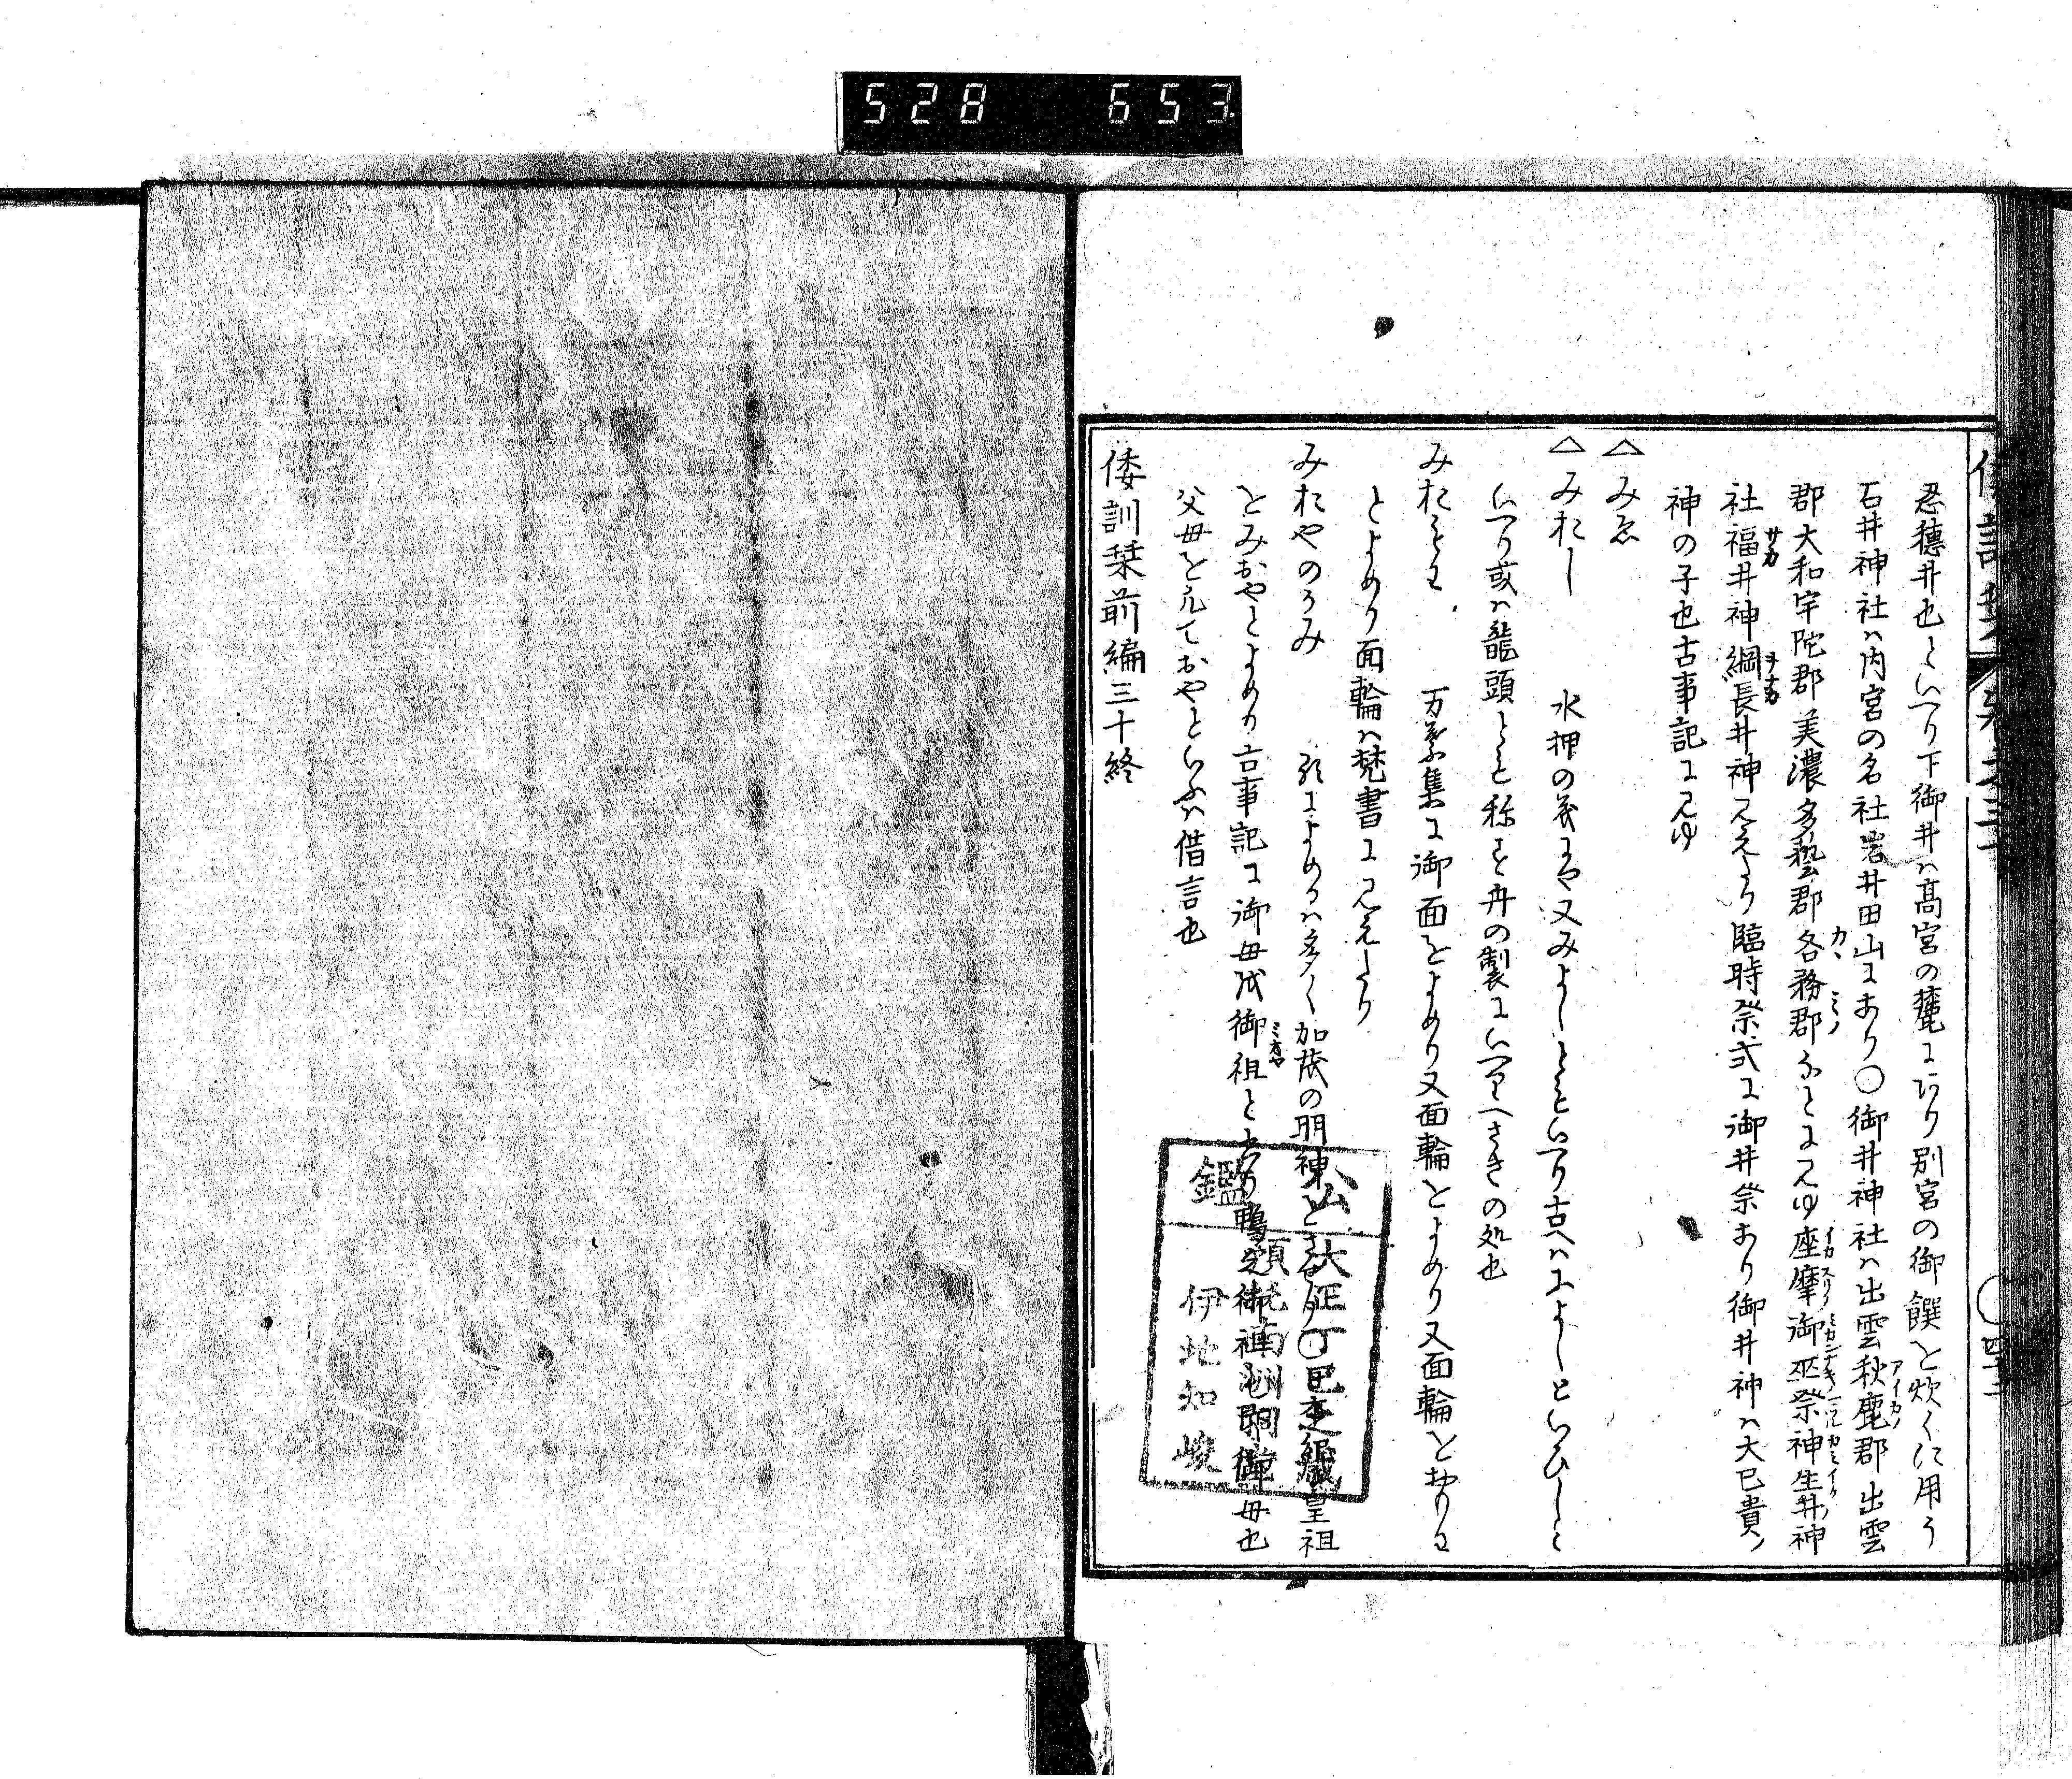 528 653
忍穂井也といへり下御井ハ高宮の麓にあり別宮の御饌を炊くに用う
石井神社ハ内宮の名社岩井田山にあり〇御井神社ハ出雲秋鹿郡出雲
郡大和宇陀郡美濃多藝郡各務郡なとにみゆ座摩御巫祭神生井神
社福井神綱長井神みえたり臨時祭式に御井祭あり御井神ハ大己貴ノ
神の子也古事記にみゆ
△みゑ
△みおし 水押の義にや又みよしともいへり古へハみよしといひしと
いへり或ハ龍頭とも称す舟の製にいへりへさきの処也
みおもわ 万葉集に御面をよめり又面輪とよめり又面輪をおりわ
とよめり面輪ハ梵書にみえたり
みおやのかみ 歌によめるハ多く加茂の明神と 皇祖
をみおやとよめり古事記に御母代御祖と 御母也
父母を凡ておやといふハ借言也
倭訓栞前編三十終
鑑
伊地知峻